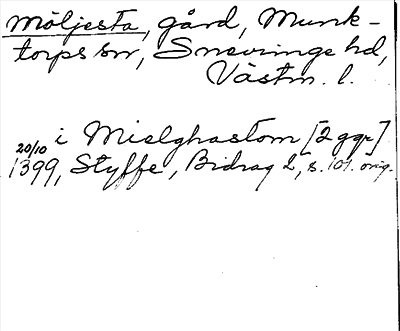 Möljesta, gård, Munk-
torps sn, Snevringe hd,
Västm. l.
i Mielghastom [2 ggr]
20/10
1399, Styffe, Bidrag 2, s. 101. orig.